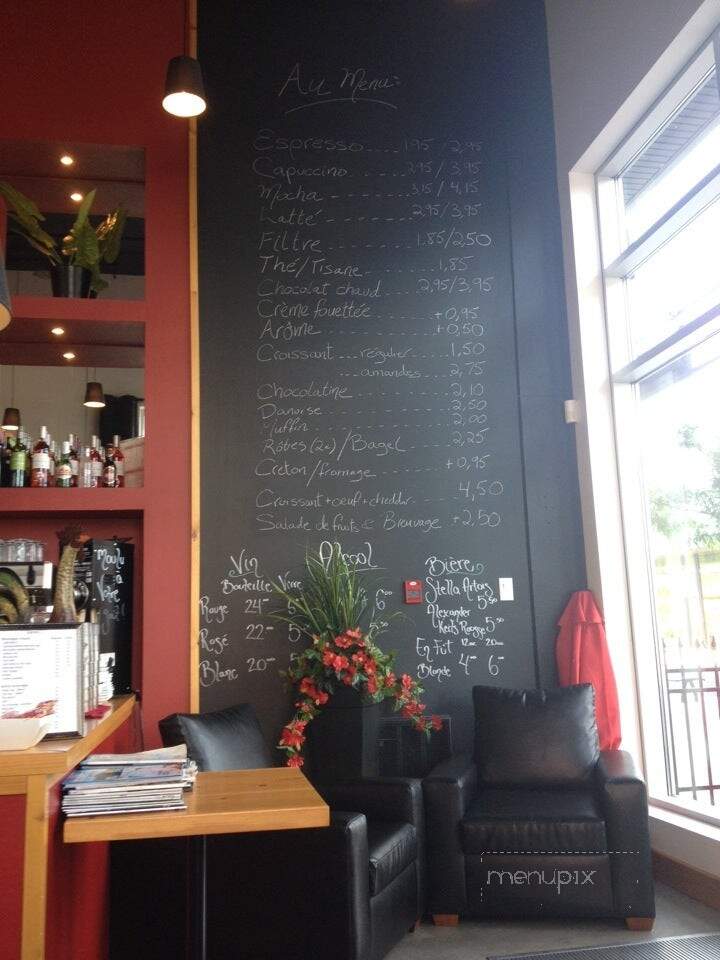 Au Menu:
Espresso....1.95/2,95
Capuccino.....2.95/3,95
Mocha--------3,15/4,15
Latté-------2.95/3,95
Filtre-------1.85/2,50
Thé/Tisane------1,85
Chocolat chaud....2,95/3,95
Crème fouettée------+0,95
Arôme----------+0,50
Croissant...régulier....1,50
...amandes...2,75
Chocolatine----------2,10
Danoise----------2,50
Muffin----------2,00
Rôties(2x)/Bagel------2,25
Creton/fromage------+0,95
Croissant+oeuf+cheddar----4,50
Salade de fruits & Breuvage +2,50
Alcool
Vin
Bouteille Verre
Rouge 24
Rosé 22
Blanc 20
6
5
Bière
Stella Artois
5.50
Alexander
Keith's Rousse 5.50
En Fût 12oz 20oz
Blonde 4 6
Moulu
à
Votre
menupix